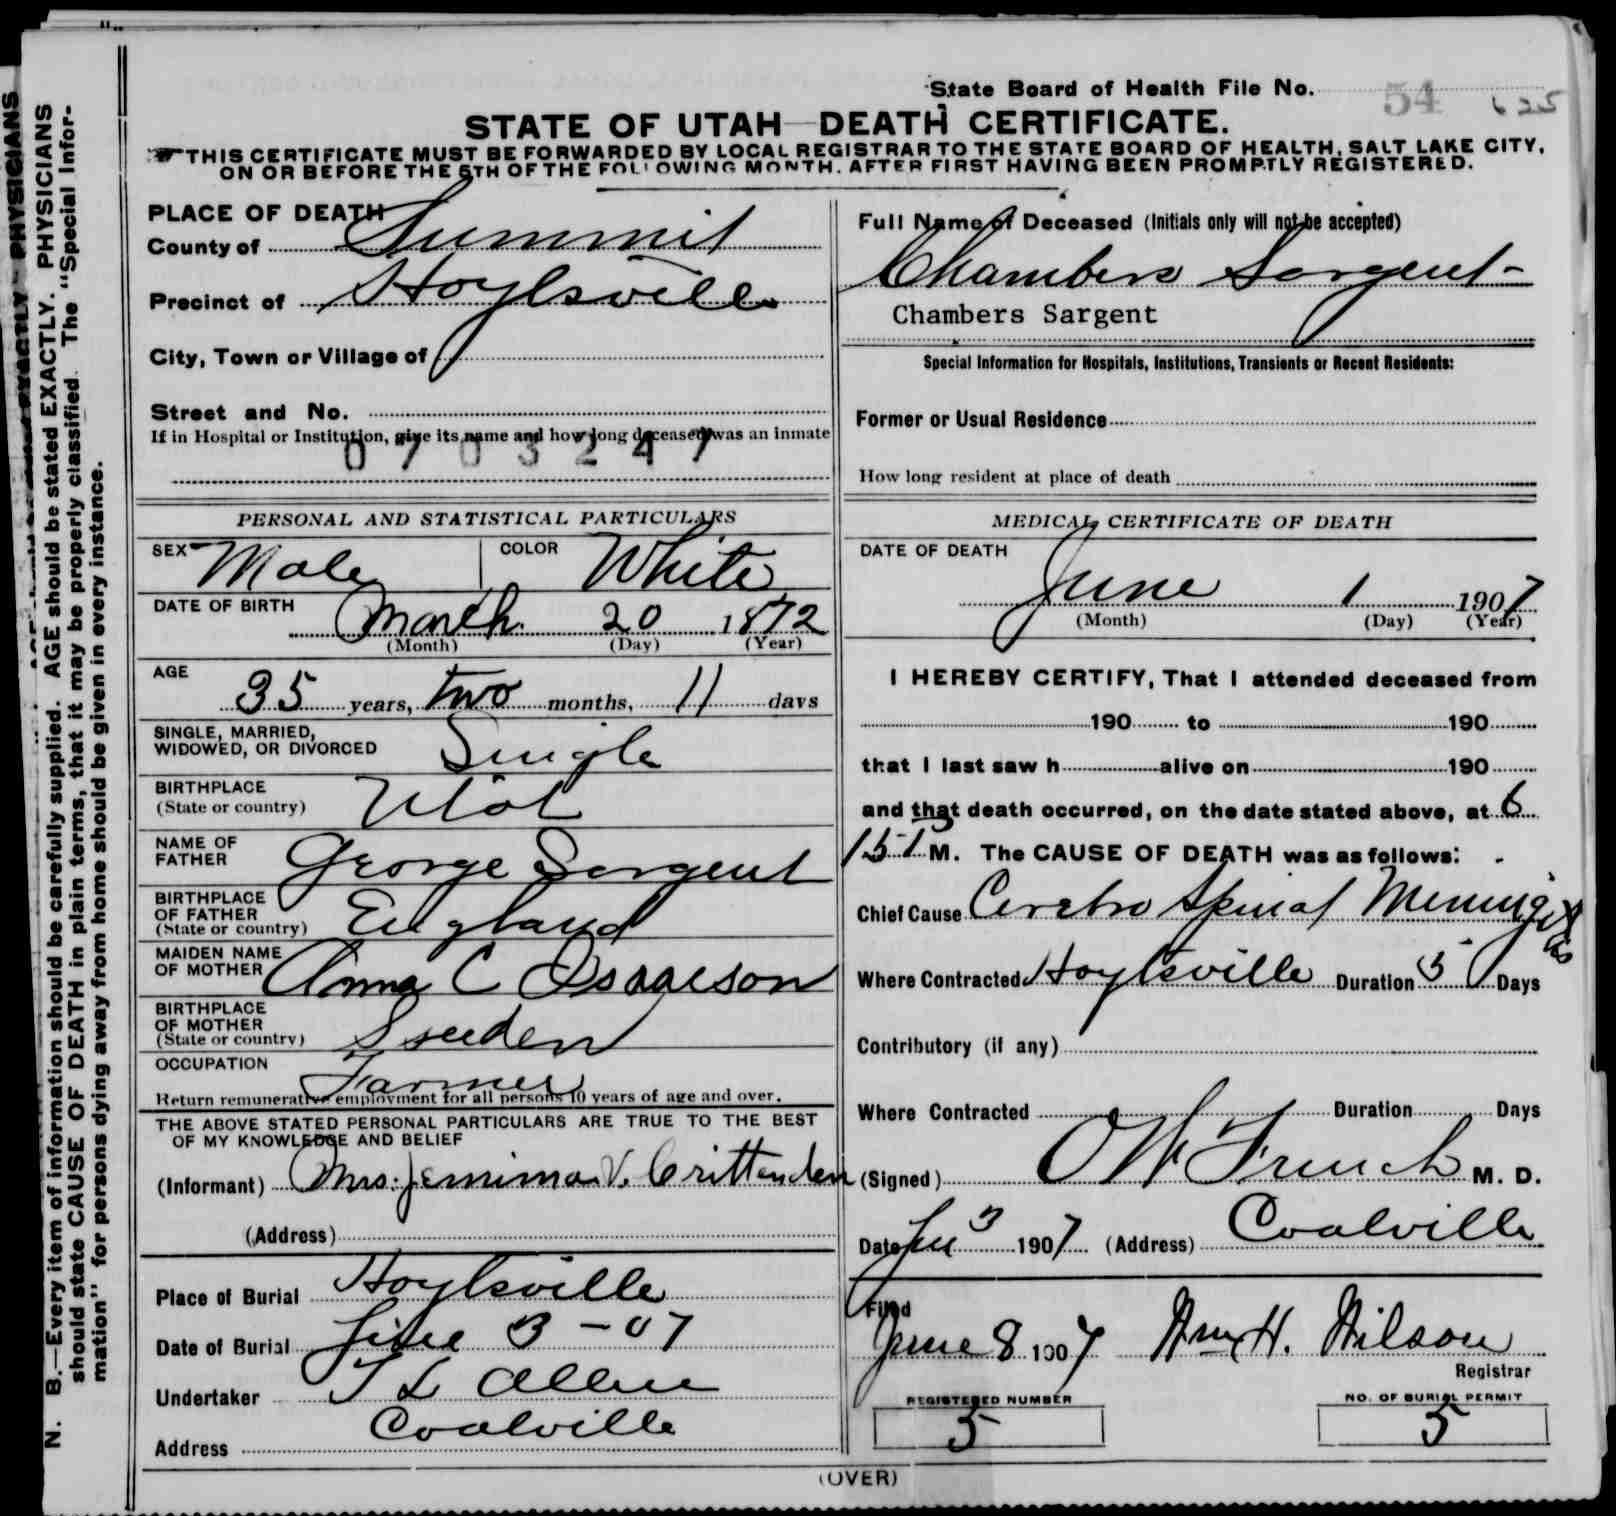 State Board of Health File No. 54 625
STATE OF UTAH—DEATH CERTIFICATE.
THIS CERTIFICATE MUST BE FORWARDED BY LOCAL REGISTRAR TO THE STATE BOARD OF HEALTH, SALT LAKE CITY,
ON OR BEFORE THE 5TH OF THE FOLLOWING MONTH, AFTER FIRST HAVING BEEN PROMPTLY REGISTERED.
PLACE OF DEATH
County of Summit
Precinct of Hoytsville
City, Town or Village of
Street and No.
If in Hospital or Institution, give its name and how long deceased was an inmate
0703247
Full Name of Deceased (Initials only will not be accepted)
Chambers Sargent
Chambers Sargent
Special Information for Hospitals, Institutions, Transients or Recent Residents:
Former or Usual Residence
How long resident at place of death
PERSONAL AND STATISTICAL PARTICULARS
SEX Male COLOR White
DATE OF BIRTH
March 20 1872
(Month) (Day) (Year)
AGE
35 years, two months, 11 days
SINGLE, MARRIED,
WIDOWED, OR DIVORCED Single
BIRTHPLACE
(State or country) Utah
NAME OF
FATHER George Sargent
BIRTHPLACE
OF FATHER
(State or country) England
MAIDEN NAME
OF MOTHER Anna C Isaacson
BIRTHPLACE
OF MOTHER
(State or country) Sweden
OCCUPATION
Farmer
Return remunerative employment for all persons 10 years of age and over.
THE ABOVE STATED PERSONAL PARTICULARS ARE TRUE TO THE BEST
OF MY KNOWLEDGE AND BELIEF
(Informant) Mrs. Jemima V. Crittenden
(Address)
Place of Burial Hoytsville
Date of Burial June 3-07
Undertaker T L Allen
Coalville
Address
MEDICAL CERTIFICATE OF DEATH
DATE OF DEATH
June 1 1907
(Month) (Day) (Year)
I HEREBY CERTIFY, That I attended deceased from
190 to 190
that I last saw h alive on 190
and that death occurred, on the date stated above, at 6
M. The CAUSE OF DEATH was as follows:
Chief Cause Cerebro Spinal Meningitis
Where Contracted Hoytsville Duration 5 Days
Contributory (if any)
Where Contracted Duration Days
(Signed) O W French M. D.
Date Ju 3 1907 (Address) Coalville
Filed
June 8 1907 Wm H. Wilson
Registrar
REGISTERED NUMBER
5
NO. OF BURIAL PERMIT
5
(OVER)
N. B.—Every item of information should be carefully supplied. AGE should be stated EXACTLY. PHYSICIANS
should state CAUSE OF DEATH in plain terms, that it may be properly classified. The "Special Infor-
mation" for persons dying away from home should be given in every instance.